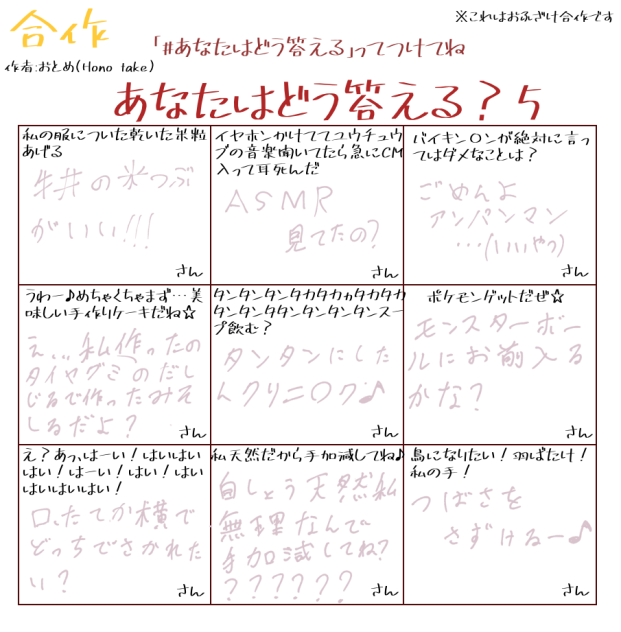 合作
※これはおふざけ合作です
「#あなたはどう答える」ってつけてね
作者:おとめ(Hono take)
あなたはどう答える？5
私の服についた乾いた米粒
あげる
牛丼の米つぶ
がいい!!!
さん
イヤホンかけててユウチュウ
ブの音楽聞いてたら急にCM
入って耳死んだ
ASMR
見てたの?
さん
バイキン〇ンが絶対に言っ
てはダメなことは?
ごめんよ
アンパンマン
…(いいやつ)
さん
うわー♪めちゃくちゃまず…美
味しい手作りケーキだね☆
え、、、私作ったの
タイヤグミのだし
じるで作ったみそ
しるだよ?
さん
タンタンタンタカタカカタカタカ
タンタンタンタンタンタンスー
プ飲む?
タンタンにした
んクリニ〇ク♪
さん
ポケモンゲットだぜ☆
モンスターボー
ルにお前入る
かな?
さん
え?あっ、はーい!はいはい
はい!はーい!はい!はい
はいはいはい!
口、たてか横で
どっちでさかれた
い?
さん
私天然だから手加減してね♪
自しょう天然私
無理なんで。
手加減してね?
??????
さん
鳥になりたい!羽ばたけ!
私の手!
つばさを
さずけるー♪
さん